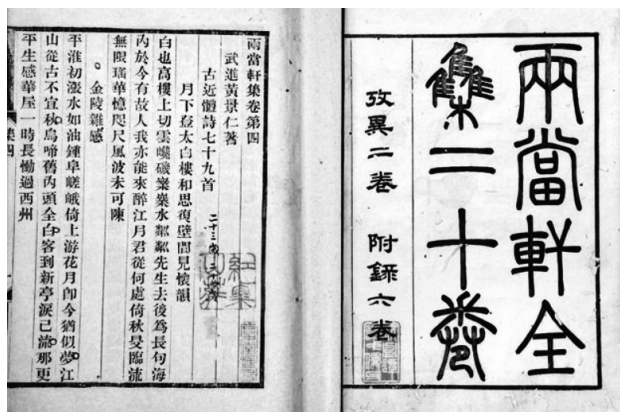 兩當軒全
集二十卷
攷異二卷 附錄六卷
兩當軒集卷第四
武進黃景仁著
古近體詩七十九首
月下登太白樓和思復壁間見懷韻
白也高樓上切雲磯水粼粼先生去後為長句海
內於今有故人我亦能來醉江月君從何處倚秋旻臨流
無限瑤華憶咫尺風波未可陳
金陵雜感
平淮初漲水如油鍾阜嵯峨倚上游花月即今猶似夢江
山從古不宜秋烏啼舊內頭全白客到新亭淚已流那更
平生感華屋一時長慟過西州
集四